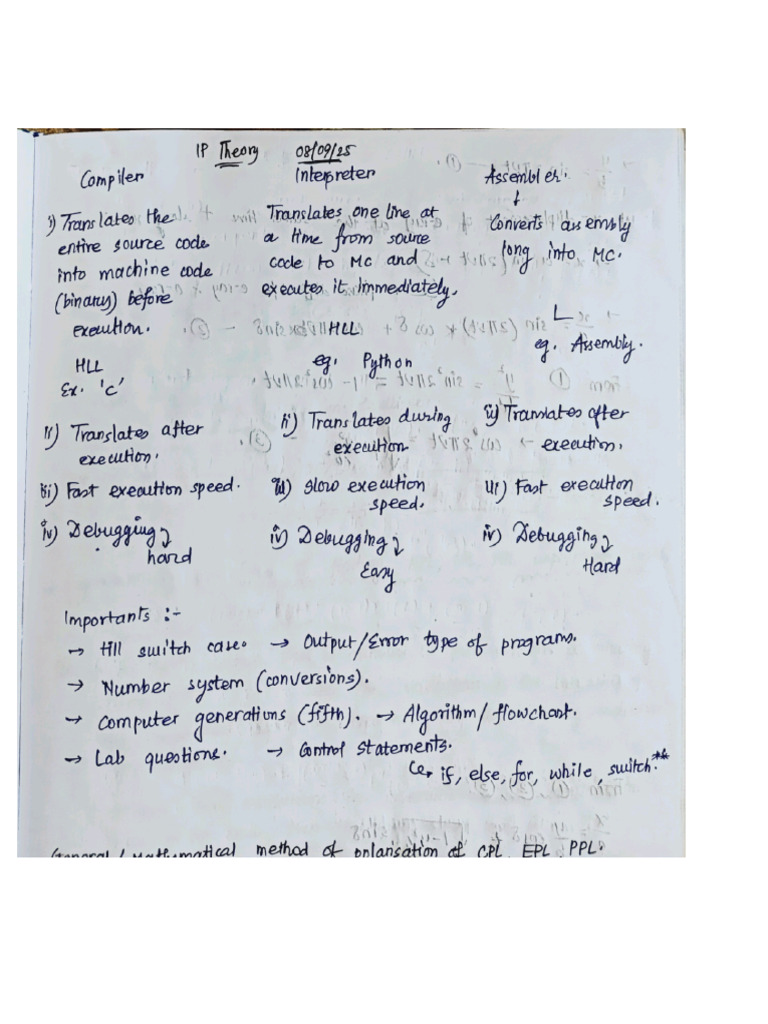 IP Theory 08/09/25
Compiler
i) Translates the
entire source code
into machine code
(binary) before
execution.
HLL
Ex. 'C'
ii) Translates after
execution.
iii) Fast execution speed.
iv) Debugging
hard
Interpreter
Translates one line at
a time from source
code to MC and
executes it immediately.
HLL
eg. Python
ii) Translates during
execution
iii) slow execution
speed.
iv) Debugging
Easy
Assembler.
↓
Converts assembly
lang into MC.
eg. Assembly.
ii) Translates after
execution.
iii) Fast execution
speed.
iv) Debugging
Hard
Importants :-
→ till switch case. → Output/Error type of programs.
→ Number system (conversions).
→ Computer generations (fifth). → Algorithm/flowchart.
→ Lab questions. → Control statements.
if, else, for, while, switch.**
General/Mathematical method of polarisation of CPL, EPL, PPL.